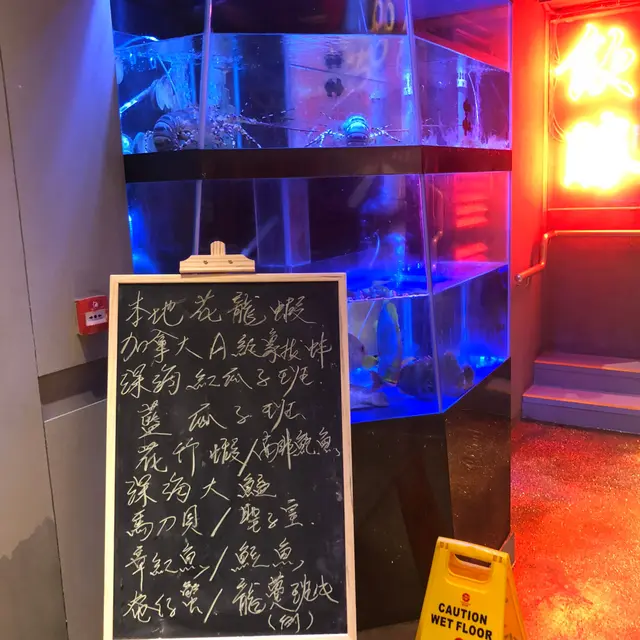 本地花龍蝦
加拿大A級象拔蚌
深海紅瓜子班
藍瓜子班
花竹蝦/南非鮑魚
深海大
馬刀貝/聖子皇
章紅魚/魚
蟹/龍躉班
(例)
CAUTION
WET FLOOR